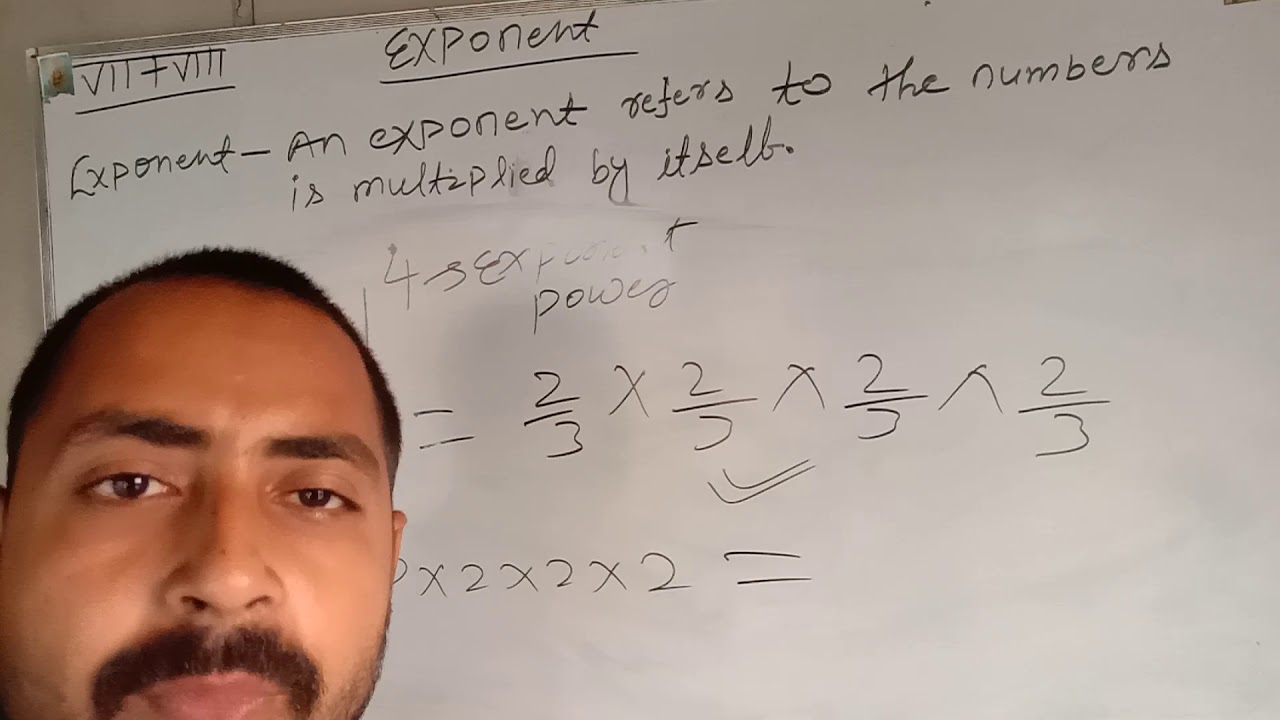 Exponent
VII + VIII
Exponent - An exponent refers to the numbers
is multiplied by itself.
4 → Exponent
power
= 2/3 × 2/3 × 2/3 × 2/3
× 2 × 2 × 2 =